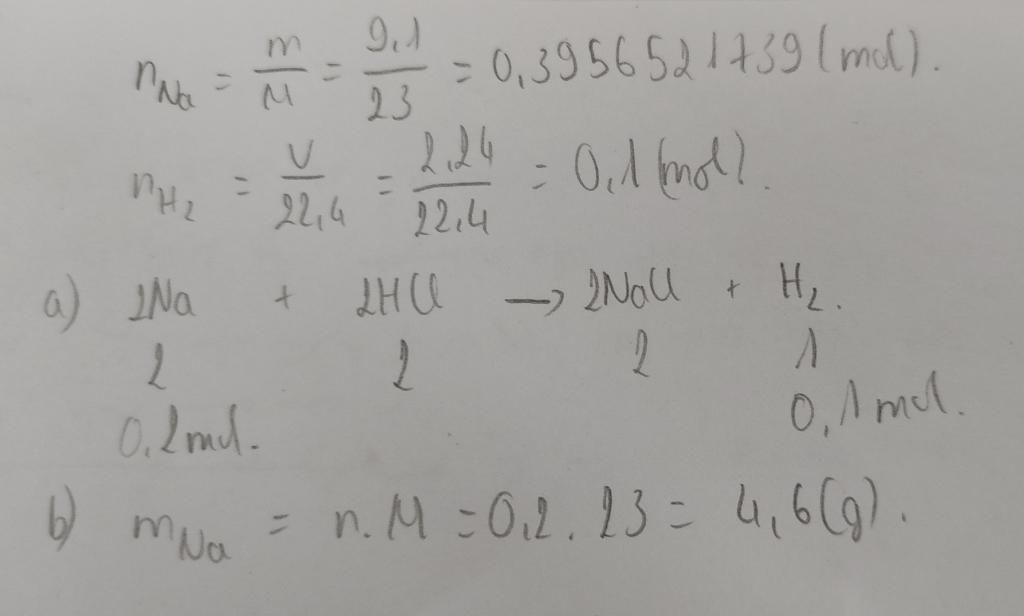 n_Na = m/M = 9,1/23 = 0,3956521739 (mol).
n_H₂ = V/22,4 = 2,24/22,4 = 0,1 (mol).
a) 2Na + 2HCl → 2NaCl + H₂.
2 2 2 1
0,2mol. 0,1 mol.
b) m_Na = n.M = 0,2 . 23 = 4,6 (g).